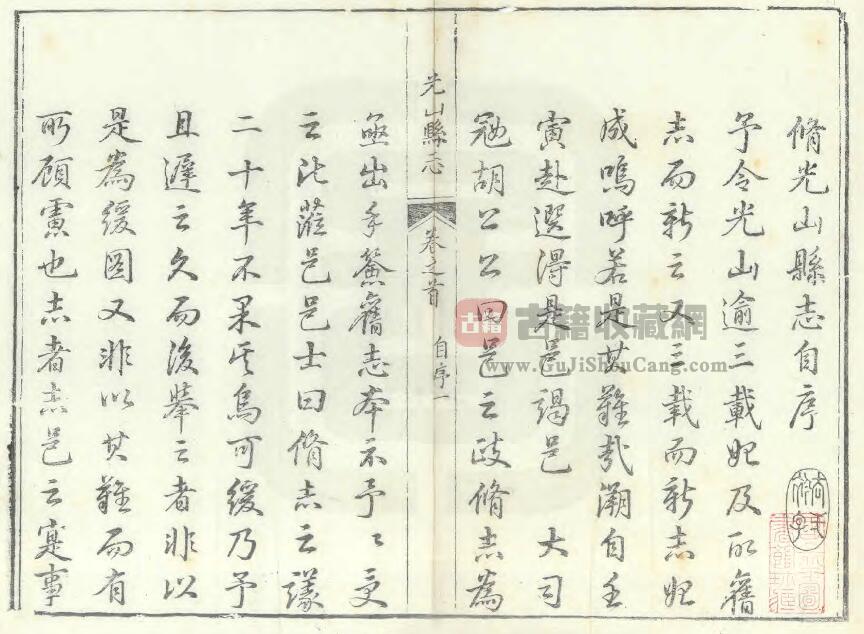 脩光山縣志自序
予令光山逾三載始及取舊
志而新之又三載而新志始
成嗚呼若是其難哉溯自壬
寅赴選得是邑謁邑 大司
寇胡公公曰邑之政脩志為
亟出手舊志本示予予受
云比蒞邑邑士曰脩志之議
二十年不果是烏可緩乃予
且遲之久而後舉之者非以
是為緩圖又非以其難而有
所顧慮也志者志邑之寔事
光山縣志
卷之首
自序一
古籍
古籍收藏網
www.GuJiShouCang.com